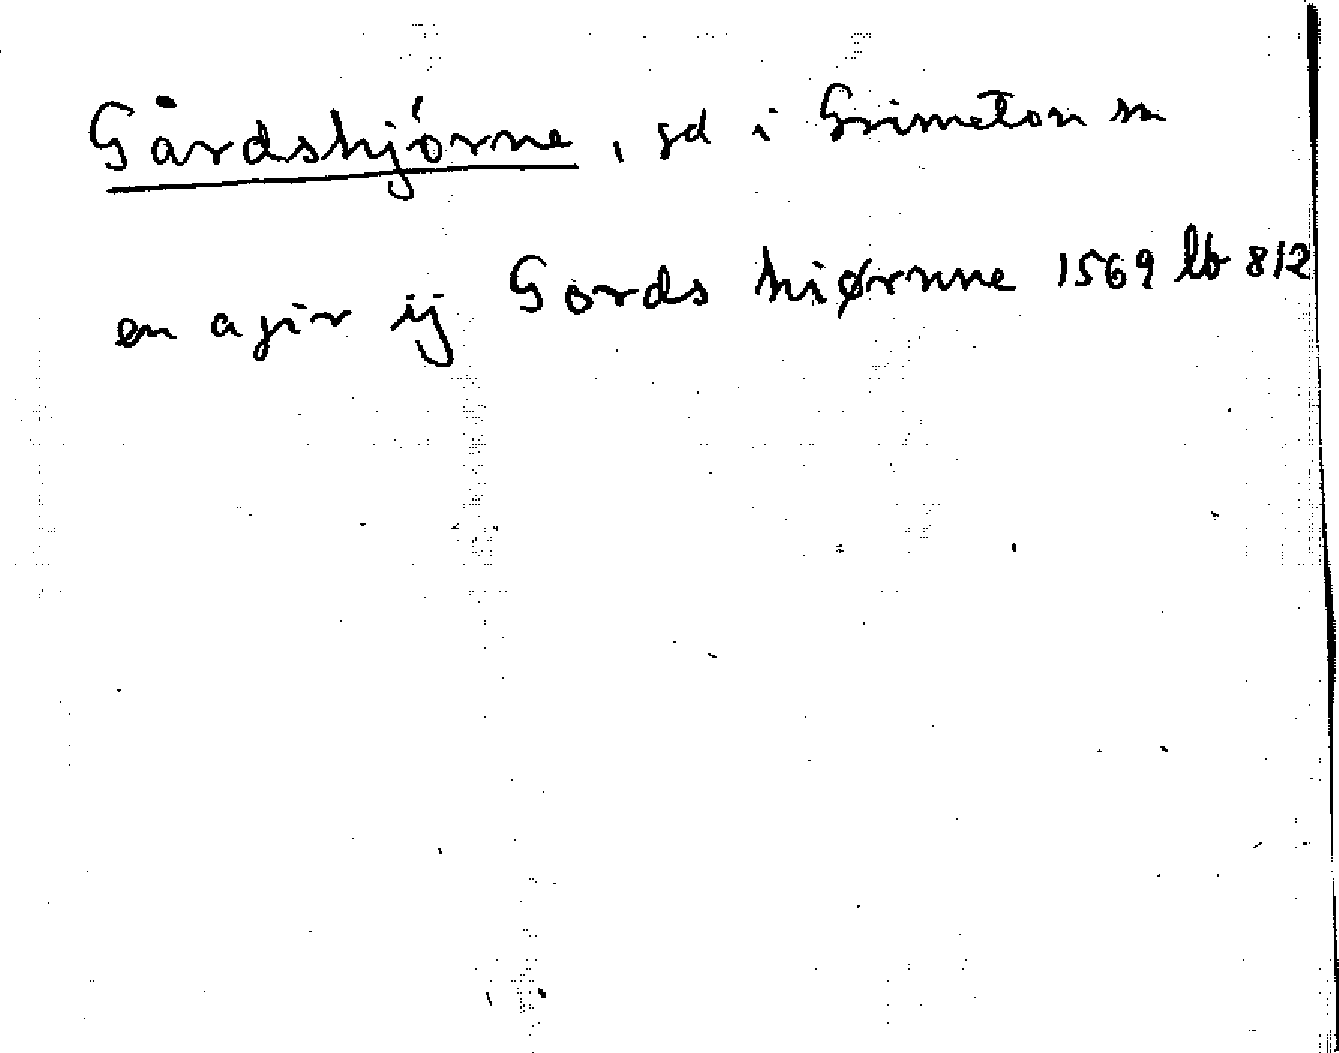 Gårdshjørne, gd i Grimeton sn
en agir ij Gords hiørnne 1569 lb 812